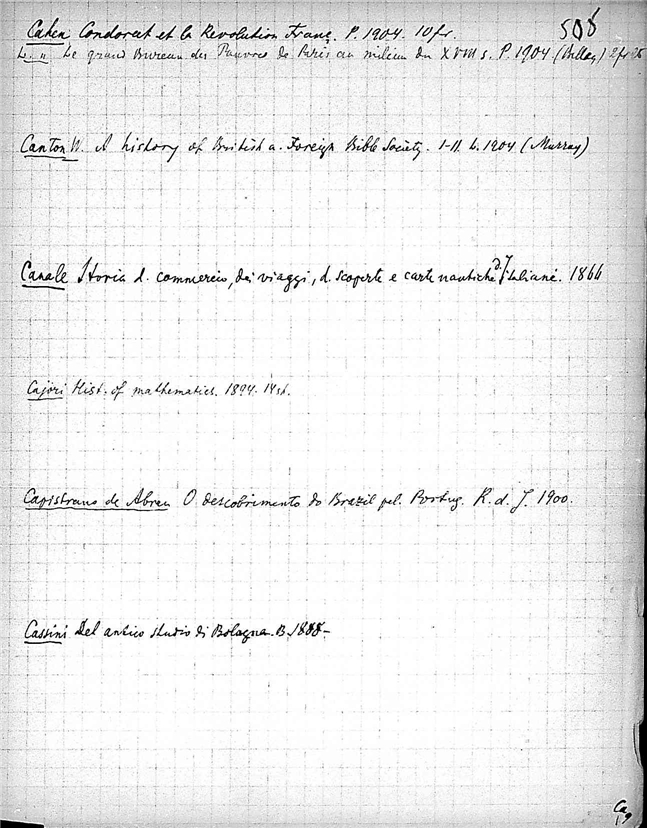 508
Cahen Condorcet et la Révolution Franç. P. 1904. 10 fr.
L. " Le grand Bureau des Pauvres de Paris au milieu du XVIII s. P. 1904 (Bellais) 2 fr 25
Canton W. A history of British a. Foreign Bible Society. I-II. L. 1904 (Murray)
Canale Storia d. commercio, dei viaggi, d. scoperte e carte nautiche d. Italiani. 1866
Cajori Hist. of mathematics. 1894. 14 sh.
Capistrano de Abreu O descobrimento do Brazil pel. Portug. R. d. J. 1900.
Cassini Del antico studio di Bologna. B. 1888 –
Ca
19